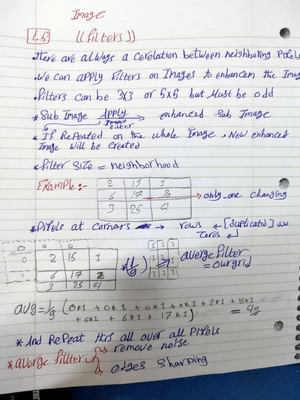 Image
L5 ((filters))
* there are always a corelation between neighboring Pixels
* we can apply filters on Images to enhancem the Imag
* filters can be 3x3 or 5x5 but Must be odd
* Sub Image apply filter enhanced Sub Image
* If Repeated on the whole Image, New enhanced
Image will be created
* filter Size = neighborhood
Example:-
2 15 1
6 17 8 only one changing
3 25 9
* Pixels at corners rows [duplicated]
zeros
0 2 15 1
0 6 17 8
3 25 9
1/9
1 1 1
1 1 1
1 1 1
averge filter
= our grid
avg = 1/9 (0x1 + 0x1 + 0x1 + 0x1 + 2x1 + 15x1
+ 0x1 + 6x1 + 17x1) = 40/9
* And Repeat this all over all Pixels
* averge filter remove noise
edges sharping